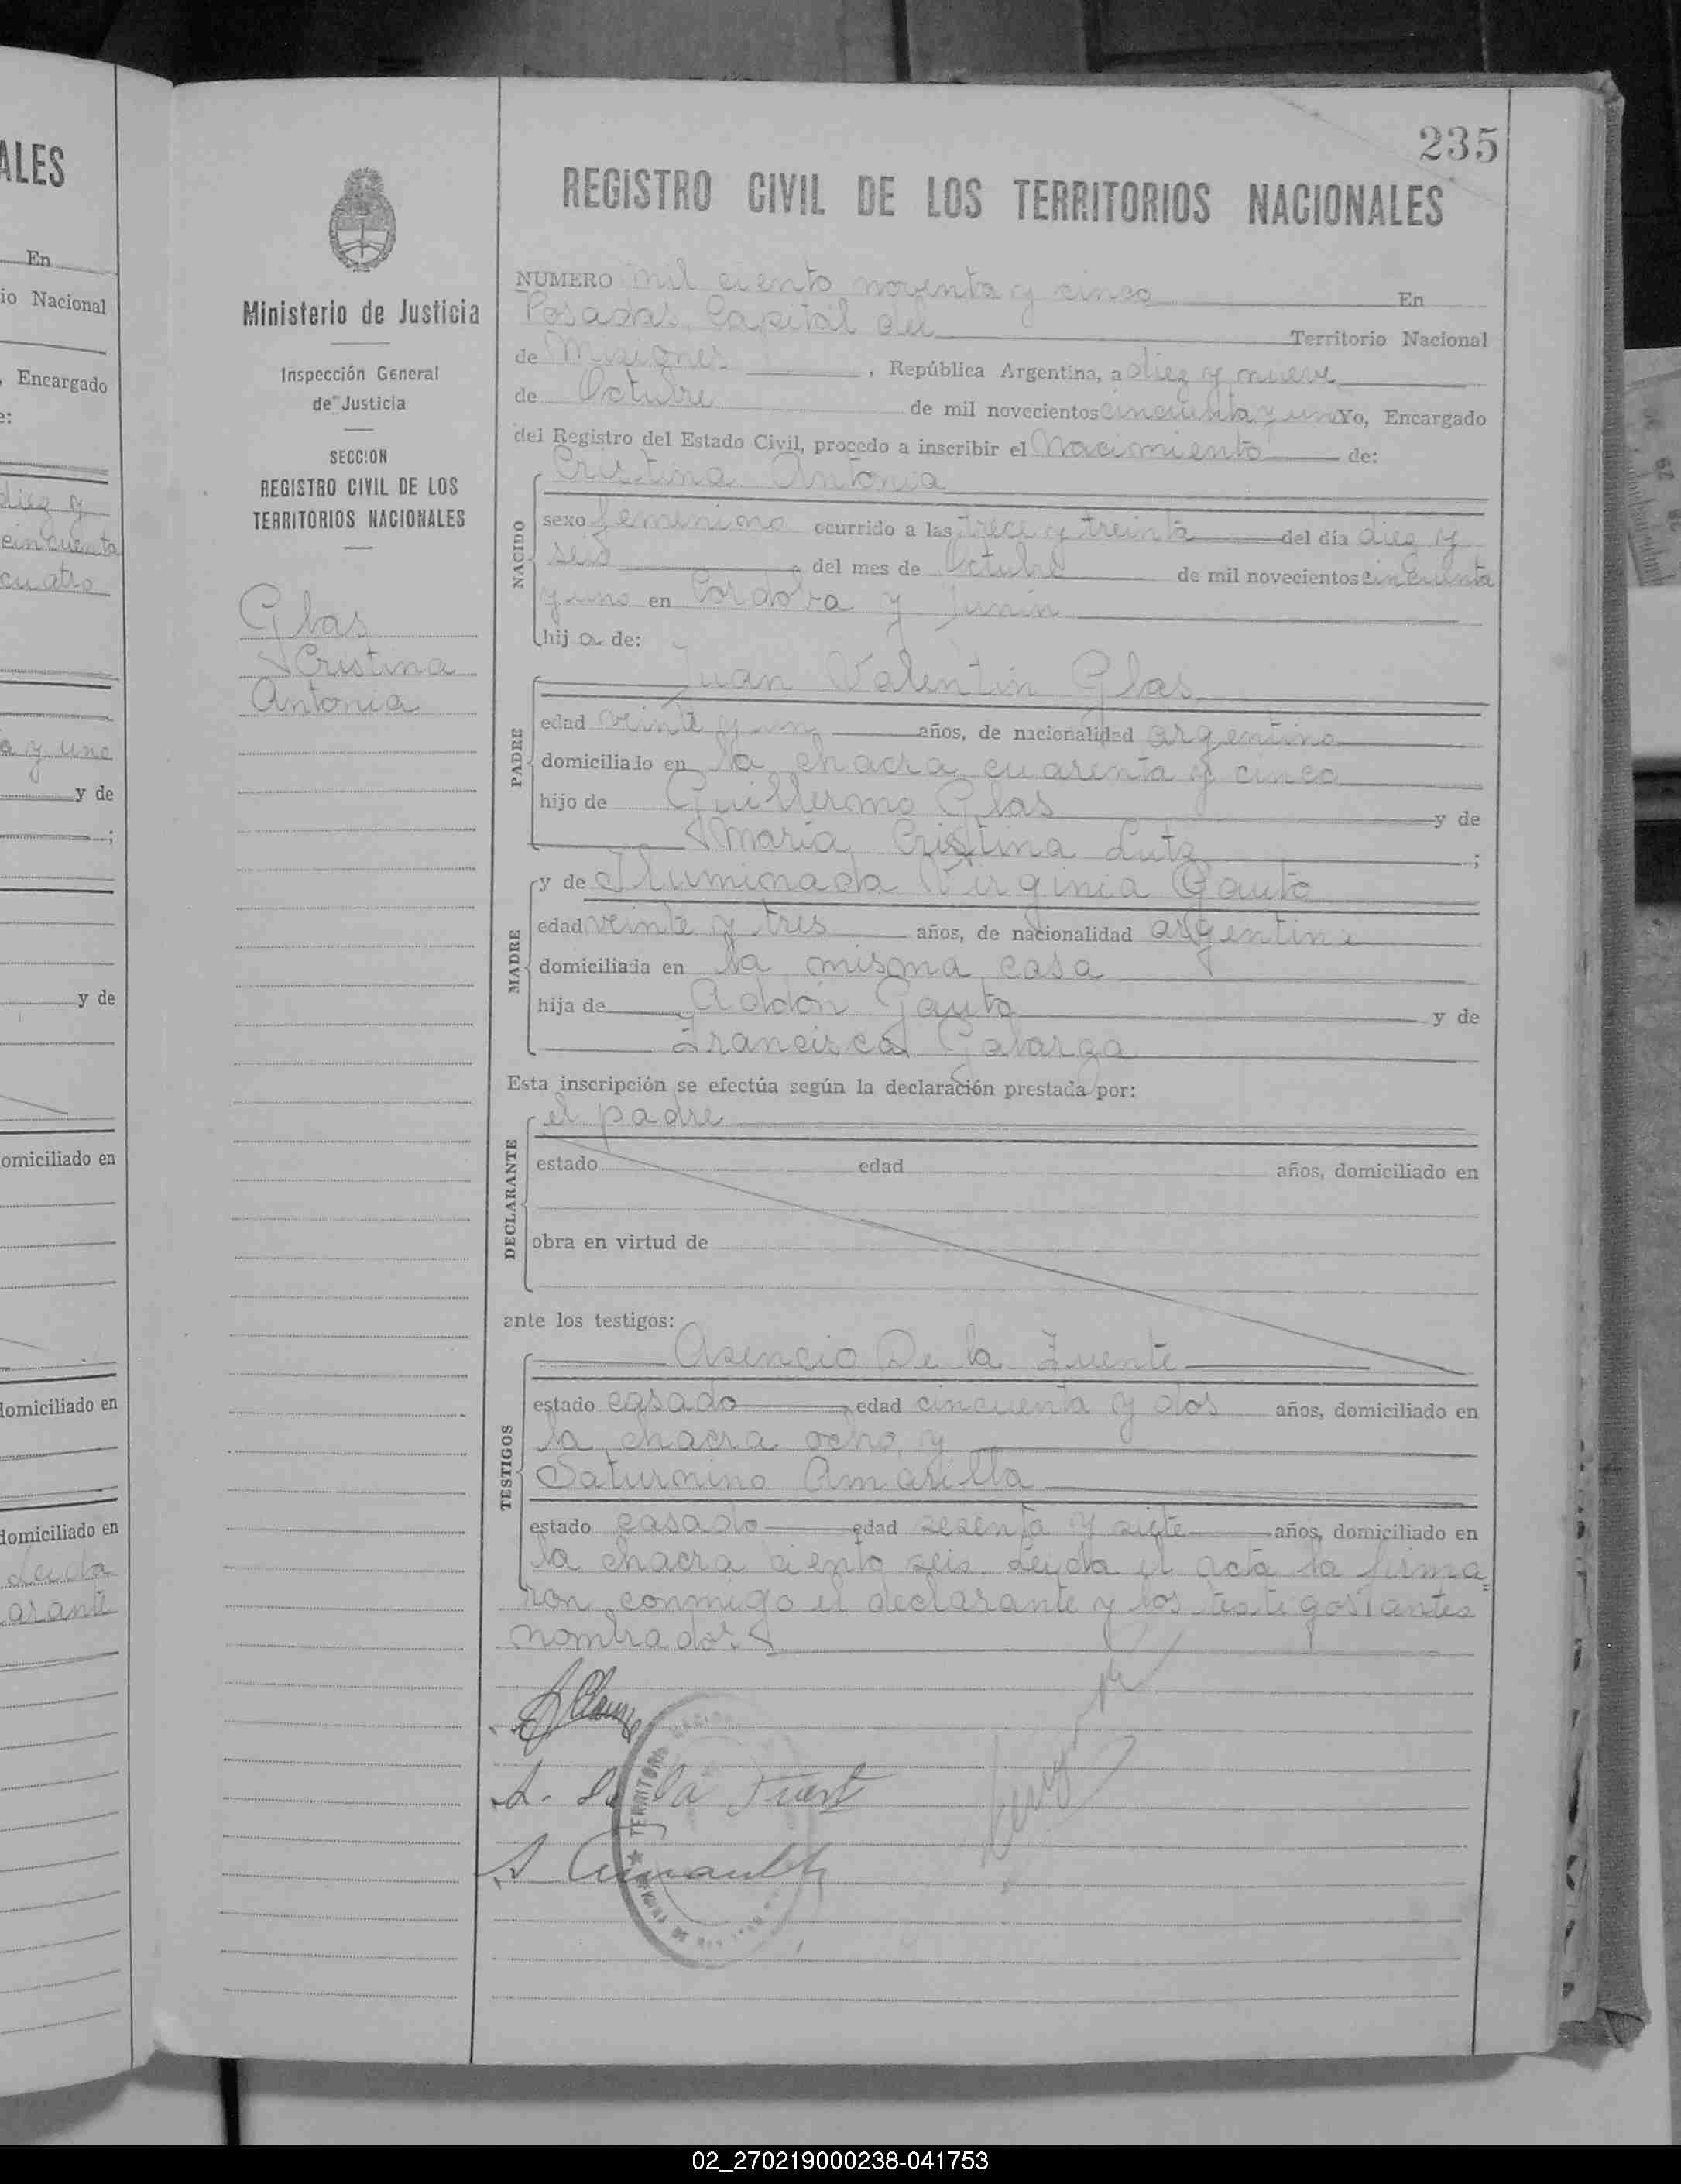 ALES
En
io Nacional
, Encargado
e:
diez y
cincuenta
cuatro
a y uno
y de
y de
omiciliado en
domiciliado en
domiciliado en
Leida
arante
Ministerio de Justicia
Inspección General
de Justicia
SECCION
REGISTRO CIVIL DE LOS
TERRITORIOS NACIONALES
Glas
Cristina
Antonia
235
REGISTRO CIVIL DE LOS TERRITORIOS NACIONALES
NUMERO mil ciento noventa y cinco En
Posadas, Capital del Territorio Nacional
de Misiones, República Argentina, a diez y nueve
de Octubre de mil novecientos cincuenta y un Yo, Encargado
del Registro del Estado Civil, procedo a inscribir el Nacimiento de:
Cristina Antonia
NACIDO
sexo femenino ocurrido a las trece y treinta del día diez y
seis del mes de Octubre de mil novecientos cincuenta
y uno en Cordoba y Junin
hij a de:
Juan Valentin Glas
PADRE
edad veinte y un años, de nacionalidad argentino
domiciliado en la chacra cuarenta y cinco
hijo de Guillermo Glas y de
Maria Cristina Lutz ;
MADRE
y de Iluminada Virginia Gauto
edad veinte y tres años, de nacionalidad argentina
domiciliada en la misma casa
hija de Addón Gauto y de
Francisca Galarza
Esta inscripción se efectúa según la declaración prestada por:
el padre
DECLARANTE
estado edad años, domiciliado en
obra en virtud de
ante los testigos:
Asencio De la Fuente
TESTIGOS
estado casado edad cincuenta y dos años, domiciliado en
la chacra ocho y
Saturnino Amarilla
estado casado edad sesenta y siete años, domiciliado en
la chacra ciento seis. Leida el acta la firma=
ron conmigo el declarante y los testigos antes
nombrados.
A. De la Fuent
02_270219000238-041753